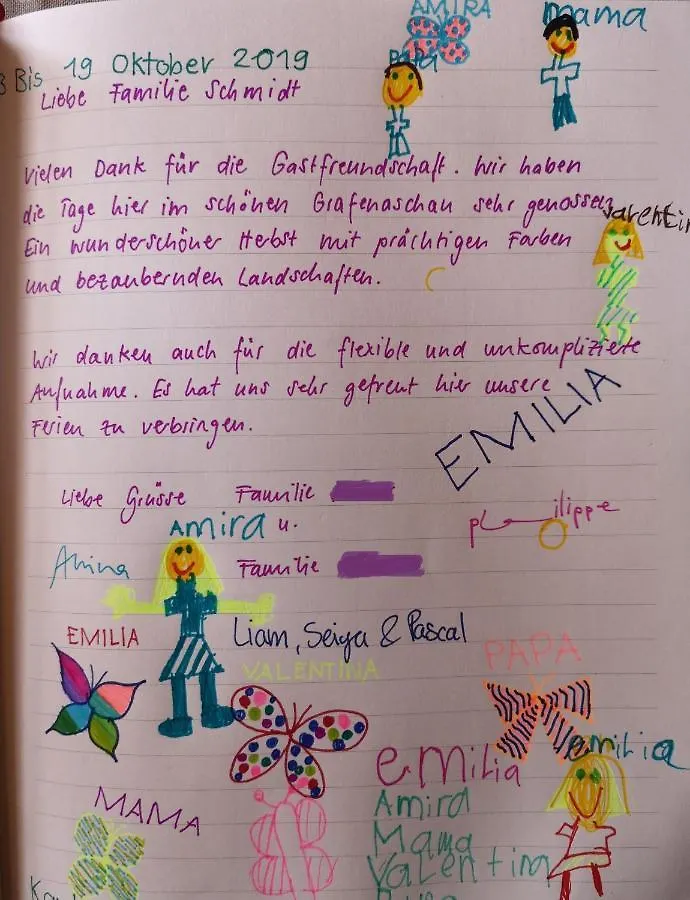 AMIRA
mama
PAPA
Bis 19 Oktober 2019
Liebe Familie Schmidt
Vielen Dank für die Gastfreundschaft. Wir haben
die Tage hier im schönen Grafenaschau sehr genossen.
Valentin
Ein wunderschöner Herbst mit prächtigen Farben
und bezaubernden Landschaften.
Wir danken auch für die flexible und unkomplizierte
Aufnahme. Es hat uns sehr gefreut hier unsere
Ferien zu verbringen.
EMILIA
Liebe Grüsse Familie
Philippe
Amira u.
Amina Familie
EMILIA Liam, Seiya & Pascal
VALENTINA
PAPA
emilia
emilia
MAMA
Amira
Mama
Valentina